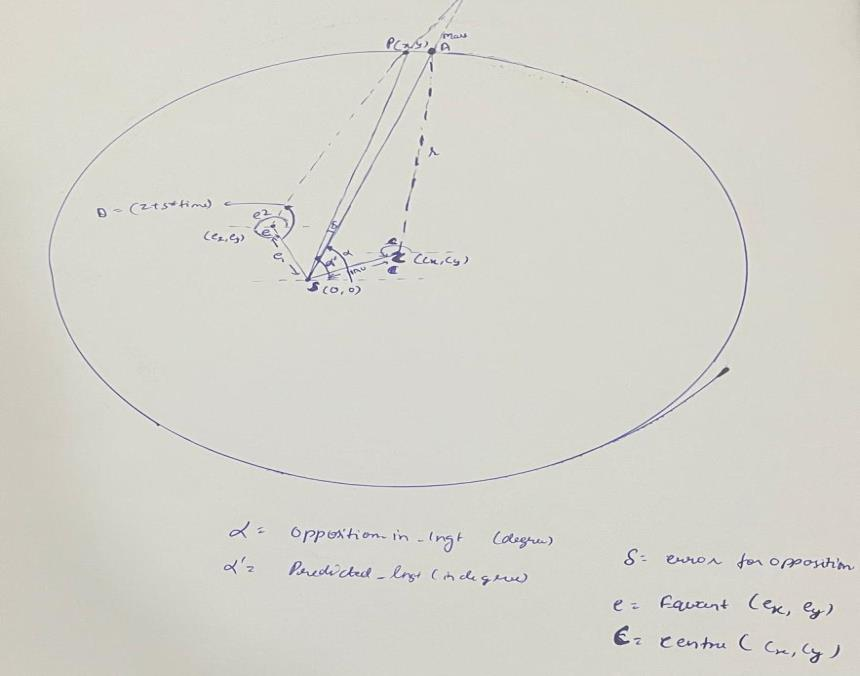 P(x,y)
Mars
A
r
D = (z+s*time)
e2
(ex,ey)
e
e1
δ
α
α'
c
(Cx,Cy)
C
S (0,0)
α = Opposition-in-lngt (degree)
α' = Predicted-lngt (in degree)
δ = error for opposition
e = Equant (ex, ey)
C = centre (Cx, Cy)